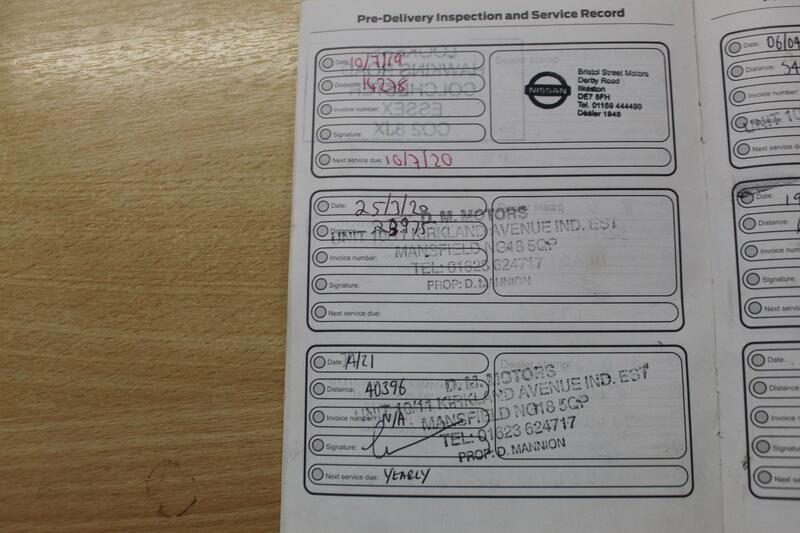 Pre-Delivery Inspection and Service Record
Date: 10/7/19
Distance: 14278
Invoice number:
Signature:
Next service due: 10/7/20
Dealer stamp
NISSAN
Bristol Street Motors
Derby Road
Ilkeston
DE7 5FH
Tel. 01159 444499
Dealer 1848
Date: 25/3/20
Invoice number: -
Signature:
Next service due:
Dealer stamp
D. M. MOTORS
UNIT 10/11 KIRKLAND AVENUE IND. EST
MANSFIELD NG18 5QP
TEL: 01623 624717
PROP: D. MANNION
Date:
Distance: 40396
Invoice number: N/A
Signature:
Next service due: YEARLY
Dealer stamp
D. M. MOTORS
UNIT 10/11 KIRKLAND AVENUE IND. EST
MANSFIELD NG18 5QP
TEL: 01623 624717
PROP: D. MANNION
Date: 06/04
Distance: 54
Invoice number:
UNIT 10
Date: 19
Distance:
Invoice number:
Signature:
Next se
Date:
Distance:
Invoice
Signature:
Next s